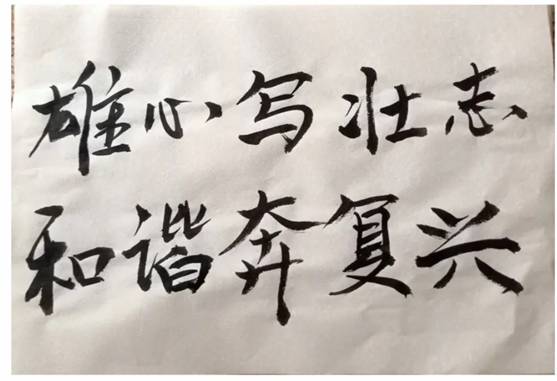 雄心写壮志
和谐奔复兴